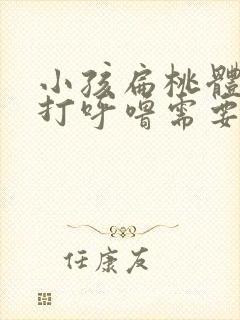 小孩扁桃體
打呼嚕需要
任康友